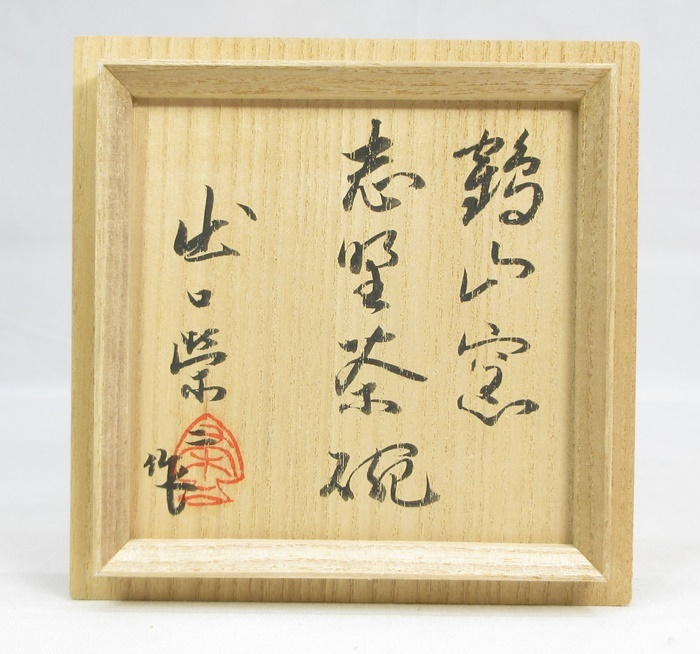 鶴山窯
志埜茶碗
出口榮二作